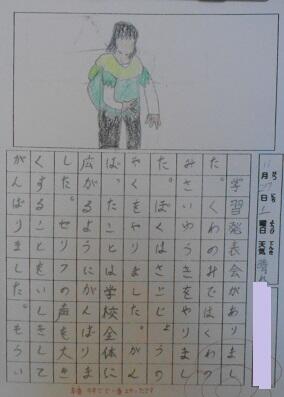 月 日 曜日 天気
学習発表会がありまし
た。くわのみではくわの
みさいゆうきをやりまし
た。ぼくはさごじょうの
やくをやりました。がん
ばったことは学校全体に
広がるようにがんばりま
した。せりフの声を大き
くすることをいしきして
がんばりました。もうい